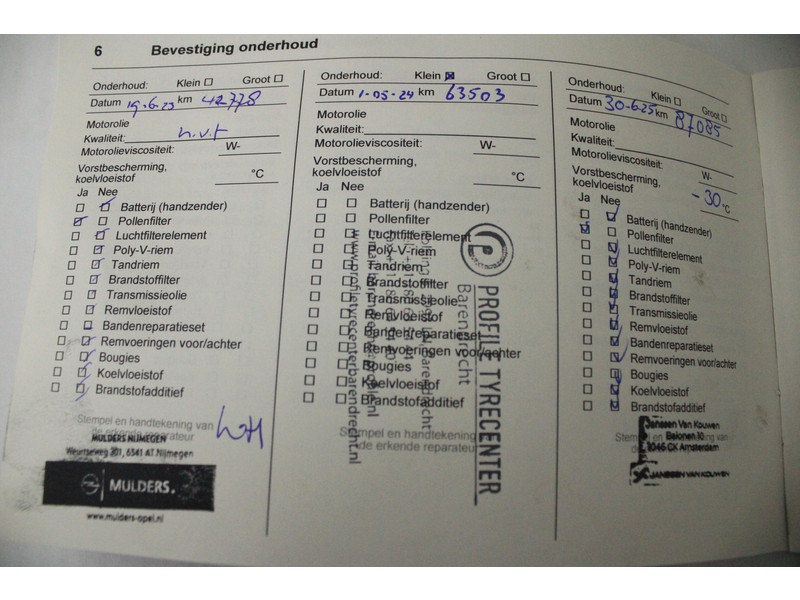 6 Bevestiging onderhoud
Onderhoud: Klein Groot
Datum 19.6.23 km 42778
Motorolie
Kwaliteit: n.v.t
Motorolieviscositeit: W-
Vorstbescherming,
koelvloeistof °C
Ja Nee
Batterij (handzender)
Pollenfilter
Luchtfilterelement
Poly-V-riem
Tandriem
Brandstoffilter
Transmissieolie
Remvloeistof
Bandenreparatieset
Remvoeringen voor/achter
Bougies
Koelvloeistof
Brandstofadditief
Stempel en handtekening van
de erkende reparateur
MULDERS NIJMEGEN
Weurtseweg 301, 6541 AT Nijmegen
MULDERS.
www.mulders-opel.nl
Onderhoud: Klein Groot
Datum 1-05-24 km 63503
Motorolie
Kwaliteit:
Motorolieviscositeit: W-
Vorstbescherming,
koelvloeistof °C
Ja Nee
Batterij (handzender)
Pollenfilter
Luchtfilterelement
Poly-V-riem
Tandriem
Brandstoffilter
Transmissieolie
Remvloeistof
Bandenreparatieset
Remvoeringen voor/achter
Bougies
Koelvloeistof
Brandstofadditief
Stempel en handtekening
de erkende reparateur
PROFILE TYRECENTER
Barendrecht
www.profiletyrecenterbarendrecht.nl
Onderhoud: Klein Groot
Datum 30-625 km 87085
Motorolie
Kwaliteit:
Motorolieviscositeit: W-
Vorstbescherming,
koelvloeistof -30 °C
Ja Nee
Batterij (handzender)
Pollenfilter
Luchtfilterelement
Poly-V-riem
Tandriem
Brandstoffilter
Transmissieolie
Remvloeistof
Bandenreparatieset
Remvoeringen voor/achter
Bougies
Koelvloeistof
Brandstofadditief
Janssen Van Kouwen
Stempel en handtekening van
1046 CK Amsterdam
JANSSEN VAN KOUWEN